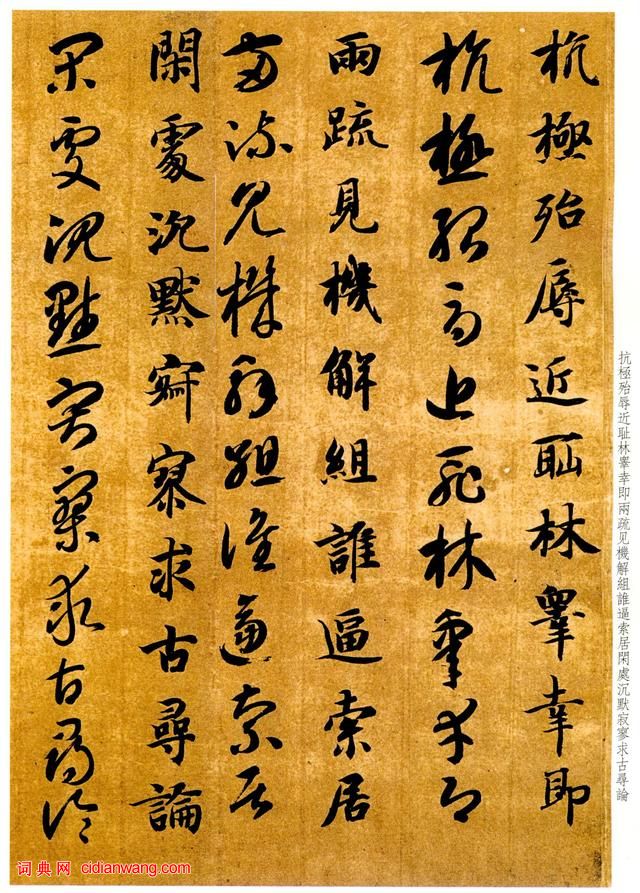 抗極殆辱近恥林睾幸即
抗極殆辱近恥林睾幸即
兩疏見機解組誰逼索居
兩疏見機解組誰逼索居
閑處沉默寂寥求古尋論
閑處沉默寂寥求古尋論
抗極殆辱近耻林睾幸即兩疏见機解組誰逼索居閑處沉默寂寥求古尋論
词典网 cidianwang.com